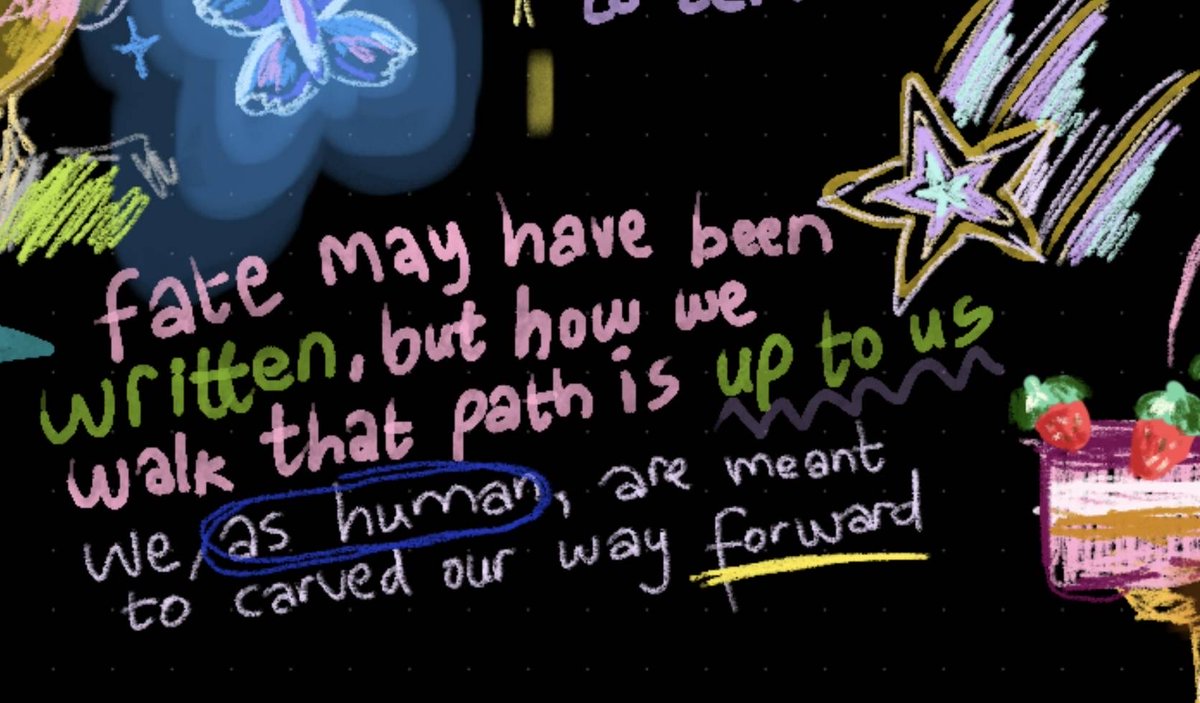 fate may have been
written, but how we
walk that path is up to us
we, as human, are meant
to carved our way forward